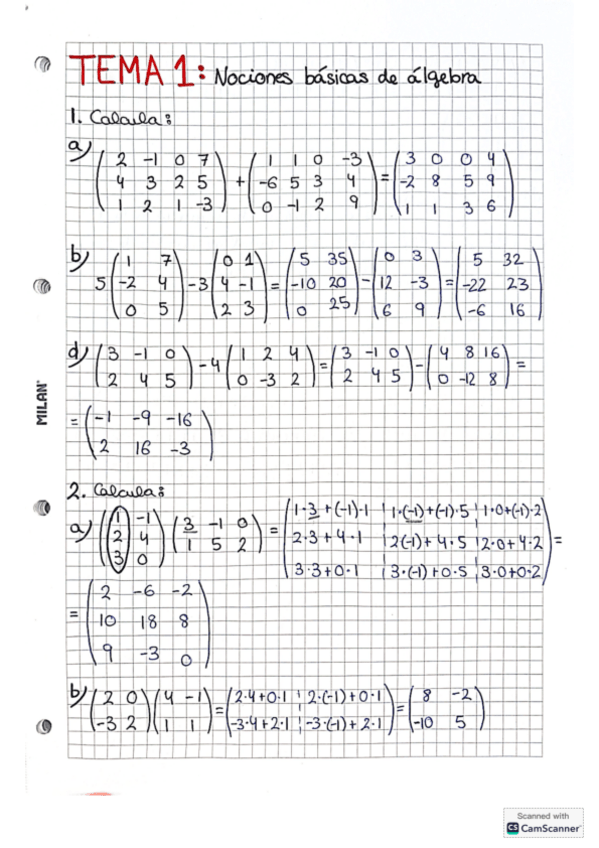 TEMA 1: Nociones básicas de álgebra
1. Calcula:
a) (2 -1 0 7 / 4 3 2 5 / 1 2 1 -3) + (1 1 0 -3 / -6 5 3 4 / 0 -1 2 9) = (3 0 0 4 / -2 8 5 9 / 1 1 3 6)
b) 5 (1 7 / -2 4 / 0 5) - 3 (0 1 / 4 -1 / 2 3) = (5 35 / -10 20 / 0 25) - (0 3 / 12 -3 / 6 9) = (5 32 / -22 23 / -6 16)
d) (3 -1 0 / 2 4 5) - 4 (1 2 4 / 0 -3 2) = (3 -1 0 / 2 4 5) - (4 8 16 / 0 -12 8) =
= (-1 -9 -16 / 2 16 -3)
2. Calcula:
a) (1 -1 / 2 4 / 3 0) (3 -1 0 / 1 5 2) = (1·3+(-1)·1 1·(-1)+(-1)·5 1·0+(-1)·2 / 2·3+4·1 2(-1)+4·5 2·0+4·2 / 3·3+0·1 3·(-1)+0·5 3·0+0·2) =
= (2 -6 -2 / 10 18 8 / 9 -3 0)
b) (2 0 / -3 2) (4 -1 / 1 1) = (2·4+0·1 2·(-1)+0·1 / -3·4+2·1 -3·(-1)+2·1) = (8 -2 / -10 5)
MILAN
Scanned with
CS CamScanner